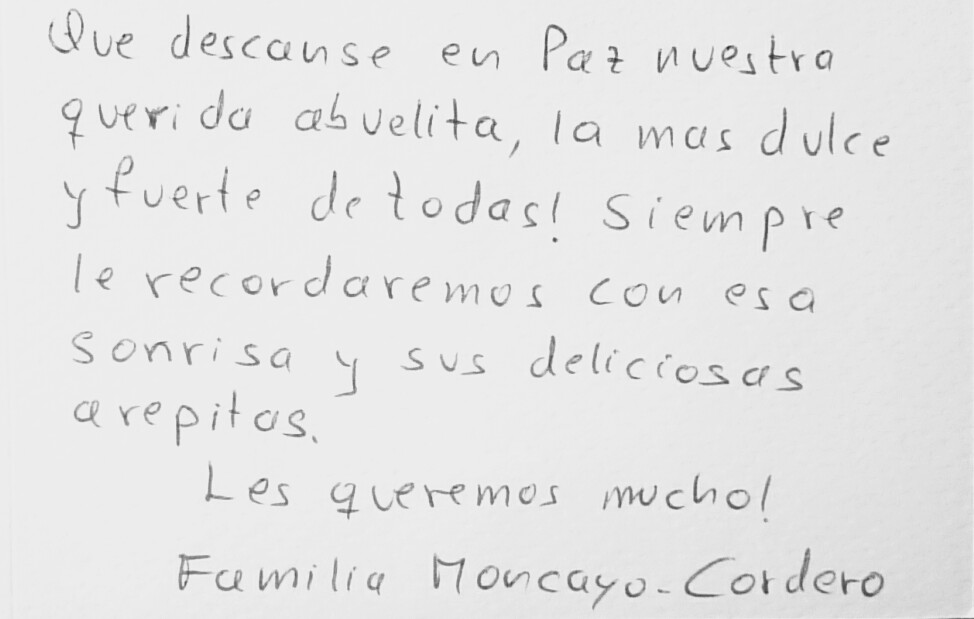 Que descanse en Paz nuestra
querida abuelita, la mas dulce
y fuerte de todas! Siempre
le recordaremos con esa
sonrisa y sus deliciosas
arepitas.
Les queremos mucho!
Familia Moncayo-Cordero